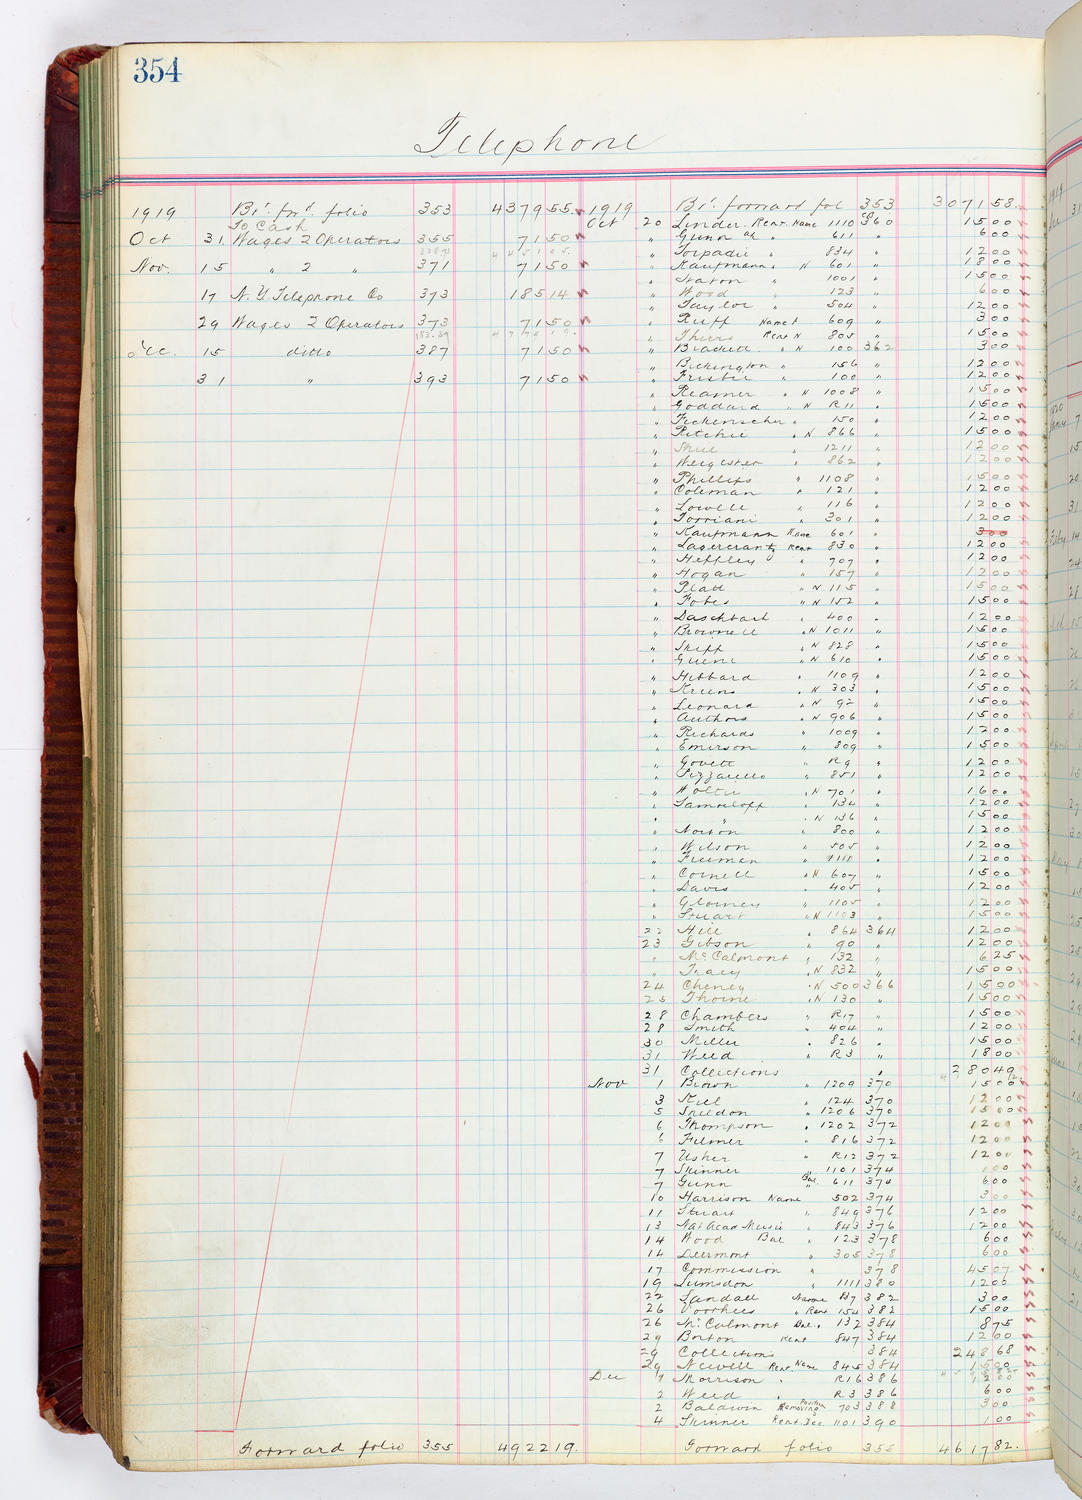 354
Telephone
1919 Br't for'd folio 353 437955
To Cash
Oct 31 Wages 2 Operators 355 7150
Nov. 15 " 2 " 371 7150
17 N.Y. Telephone Co 373 18514
29 Wages 2 Operators 373 7150
Dec. 15 ditto 387 7150
31 " 393 7150
Forward folio 355 492219
1919 Br't forward fol 353 307158
Oct 20 Linder Rent. Name 1110 360 1500
" Gunn 611 " 600
" Torpadie " 834 " 1200
" Kaufmann " N 601 " 1800
" Staton " 1001 " 1500
" Wood " 123 " 600
" Taylor " 504 " 1200
" Ruff Name 609 " 300
" Thiers Rent N 805 " 1500
" Brackett " N 100 362 300
" Bickington " 156 " 1200
" Frisbie " 100 " 1200
" Reamer " N 1008 " 1500
" Goddard " N R11 " 1500
" Fickenscher " 150 " 1200
" Ritchie " N 866 " 1500
" 1211 " 1200
" Wergister " 862 " 1200
" Phillips " 1108 " 1500
" Coleman " 121 " 1200
" Lowell " 116 " 1200
" Torriani " 301 " 1200
" Kaufmann Name 601 " 300
" Lagercrantz Rent 830 " 1200
" Heffley " 707 " 1200
" Hogan " 157 " 1200
" Platt " N 115 " 1500
" Fobes " N 152 " 1500
" Daschbach " 400 " 1200
" Brownell " N 1011 " 1500
" Skiff " N 828 " 1500
" Guene " N 610 " 1500
" Hibbard " 1109 " 1200
" Kruns " N 303 " 1500
" Leonard " N 92 " 1500
" Authors " N 906 " 1500
" Richards " 1009 " 1200
" Emerson " 809 " 1500
" Govett " R9 " 1200
" Pizzarello " 851 " 1200
" Holtu " N 701 " 1600
" Samoiloff " 134 " 1200
" " " N 136 " 1500
" Norton " 800 " 1200
" Wilson " 505 " 1200
" Freeman " 1111 " 1200
" Cornell " N 607 " 1500
" Davis " 405 " 1200
" Glorney " 1105 " 1200
" Stuart " N 1103 " 1500
22 Hill " 864 364 1200
23 Gibson " 90 " 1200
" McCalmont " 132 " 625
" Tracy " N 832 " 1500
24 Cheney " N 500 366 1500
25 Thorne " N 130 " 1500
28 Chambers " R17 " 1500
28 Smith " 404 " 1200
30 Miller " 826 " 1500
31 Weed " R3 " 1800
31 Collections " 28049
Nov 1 Brown " 1209 370 1500
3 Kiel " 124 370 1200
5 Sheldon " 1206 370 1500
6 Thompson " 1202 372 1200
6 Filmer " 816 372 1200
7 Usher " R12 372 1200
7 Skinner " 1101 374 100
7 Gunn Bal. 611 374 600
10 Harrison Name 502 374 300
11 Stuart " 849 376 1200
13 Nat Acad Music " 843 376 1200
14 Wood Bal " 123 378 600
14 Deermont " 305 378 600
17 Commission " 378 4507
19 Lumsdon " 1111 380 1200
22 Sandall Name B7 382 300
26 Voorhees " Rent 154 382 1500
26 McCalmont Bal. 132 384 875
29 Borton Rent 847 384 1200
29 Collections 384 24868
29 Newell Rent. Name 845 384 1500
Dec 1 Morrison " R16 386 1200
2 Weed " R3 386 600
2 Baldwin Removing Position 703 388 300
4 Skinner Rent. Dec 1101 390 100
Forward folio 355 461782